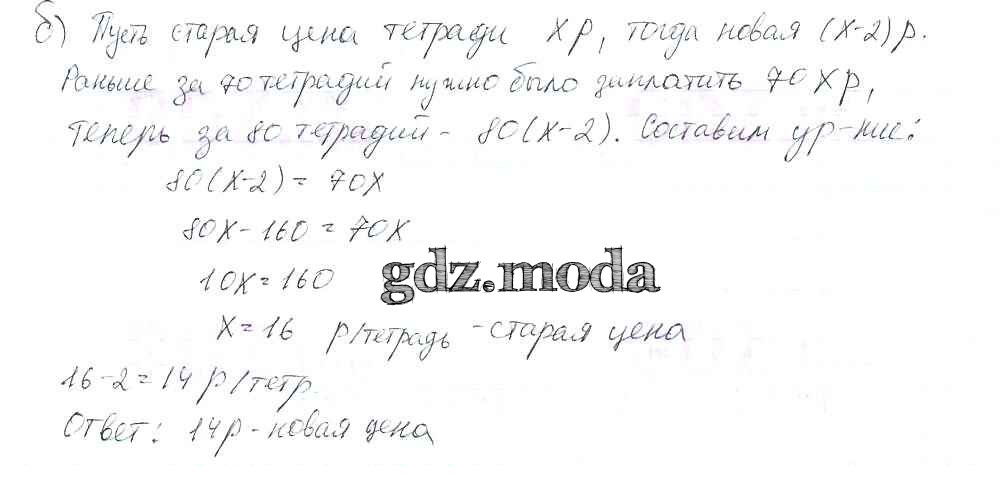 б) Пусть старая цена тетради х р, тогда новая (х-2) р.
Раньше за 70 тетрадий нужно было заплатить 70х р,
теперь за 80 тетрадий - 80(х-2). Составим ур-ние:
80(х-2) = 70х
80х - 160 = 70х
10х = 160
gdz.moda
х = 16 р/тетрадь - старая цена
16-2 = 14 р/тетр.
Ответ: 14р - новая цена